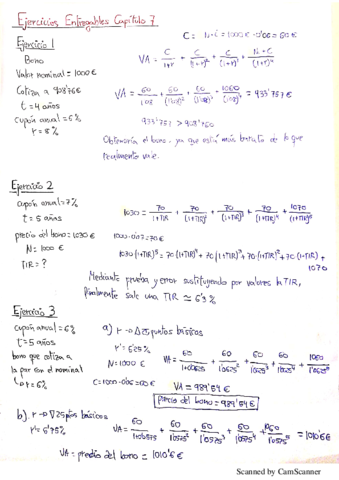 Ejercicios Entregables Capítulo 7
Ejercicio 1
Bono
Valor nominal = 1000 €
Cotiza a 908'76 €
t = 4 años
cupón anual = 6%
r = 8%
C = N·i = 1000 € · 0'06 = 60 €
VA = C/1+r + C/(1+r)² + C/(1+r)³ + N+C/(1+r)⁴
VA = 60/1'08 + 60/(1'08)² + 60/(1'08)³ + 1060/(1'08)⁴ = 933'757 €
933'757 > 908'760
Obtendría el bono, ya que está más barato de lo que
realmente vale.
Ejercicio 2
cupón anual = 7%
t = 5 años
precio del bono = 1030 €
N = 1000 €
TIR = ?
1030 = 70/1+TIR + 70/(1+TIR)² + 70/(1+TIR)³ + 70/(1+TIR)⁴ + 1070/(1+TIR)⁵
1000·0'07 = 70 €
1030 (1+TIR)⁵ = 70 (1+TIR)⁴ + 70 (1+TIR)³ + 70 (1+TIR)² + 70 (1+TIR) + 1070
Mediante prueba y error sustituyendo por valores la TIR,
finalmente sale una TIR ≃ 6'3 %
Ejercicio 3
cupón anual = 6%
t = 5 años
bono que cotiza a
la par con el nominal
↳ r = 6%
a) r → Δ 25 puntos básicos
r' = 6'25 %
N = 1000 €
C = 1000·0'06 = 60 €
VA = 60/1'0625 + 60/1'0625² + 60/1'0625³ + 60/1'0625⁴ + 1060/1'0625⁵
VA = 989'54 €
precio del bono = 989'54 €
b) r → ∇ 25 ptos básicos
r' = 5'75 %
VA = 60/1'0575 + 60/1'0575² + 60/1'0575³ + 60/1'0575⁴ + 1060/1'0575⁵ = 1010'6 €
VA = precio del bono = 1010'6 €
Scanned by CamScanner